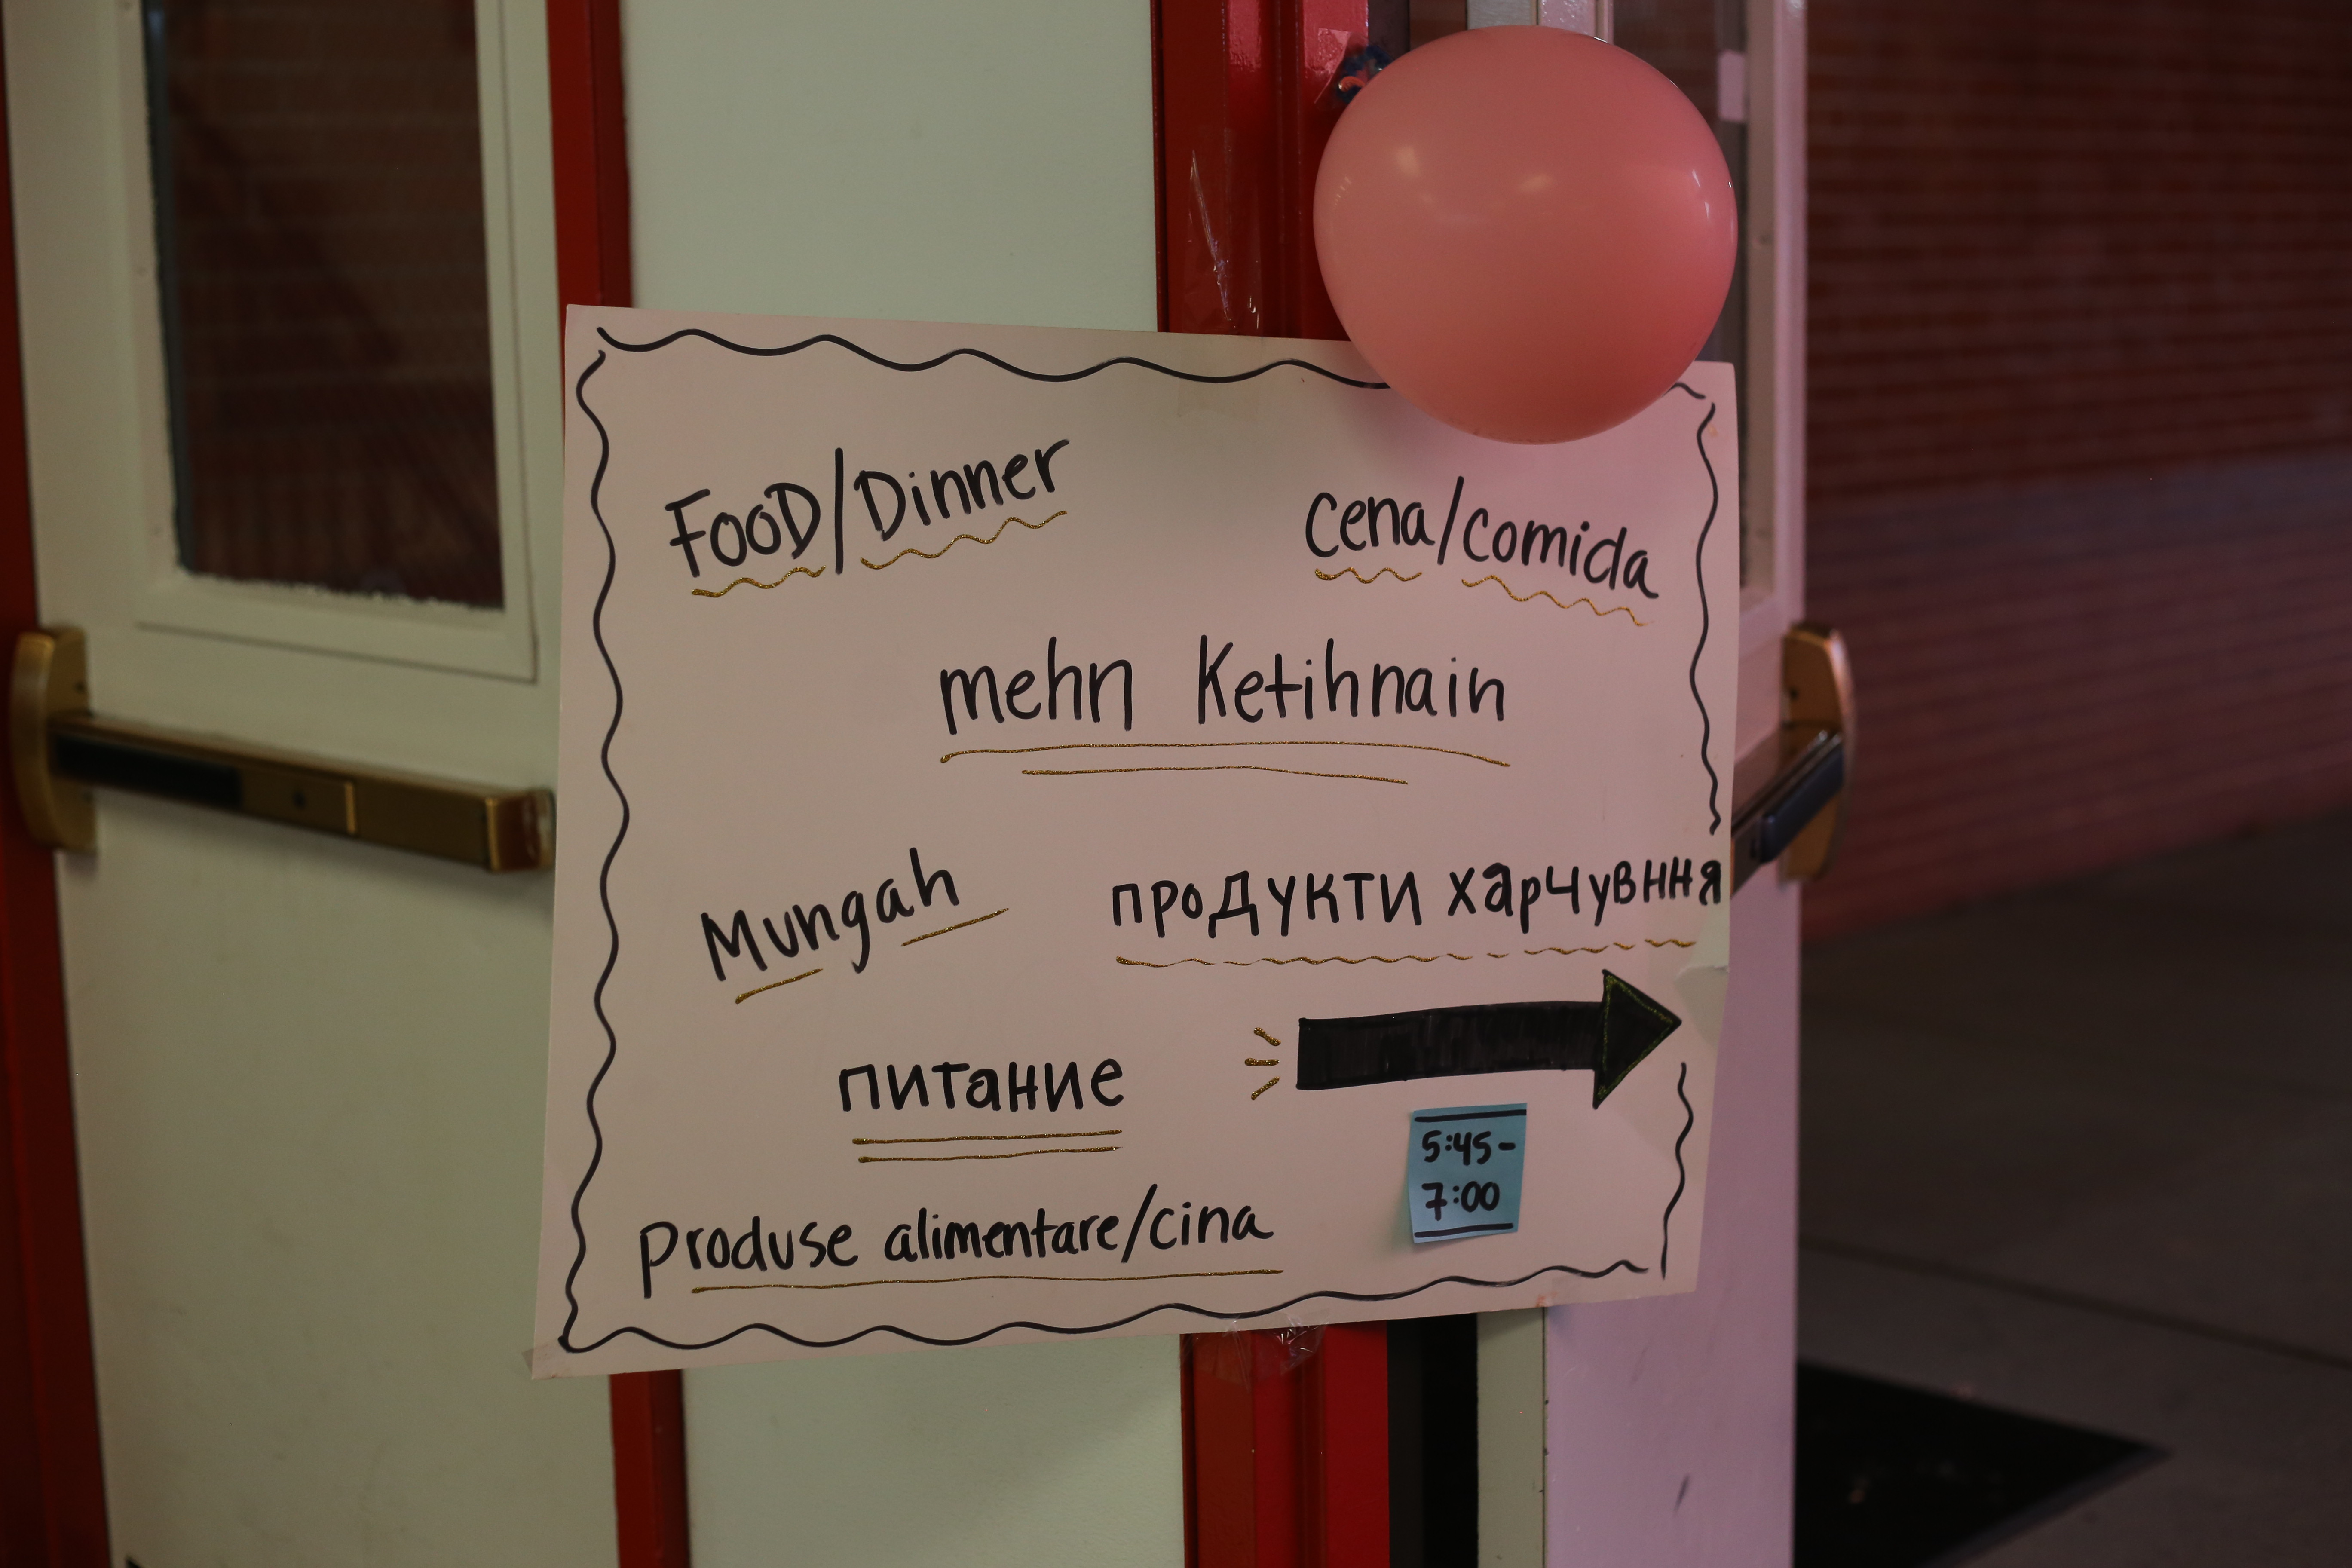 FooD/Dinner
Cena/comida
mehn Ketihnain
Mungah
продукти харчувння
питание
Produse alimentare/cina
5:45-
7:00